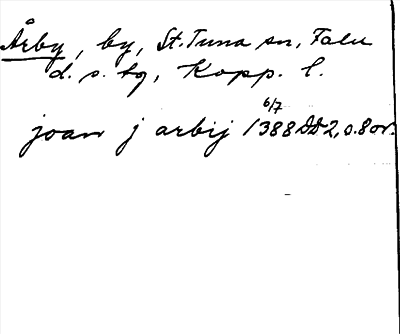 Årby, by, St. Tuna sn, Falu
d. s. tg, Kopp. l.
6/7
joan j arbij 1388 DD 2, s. 8 or.